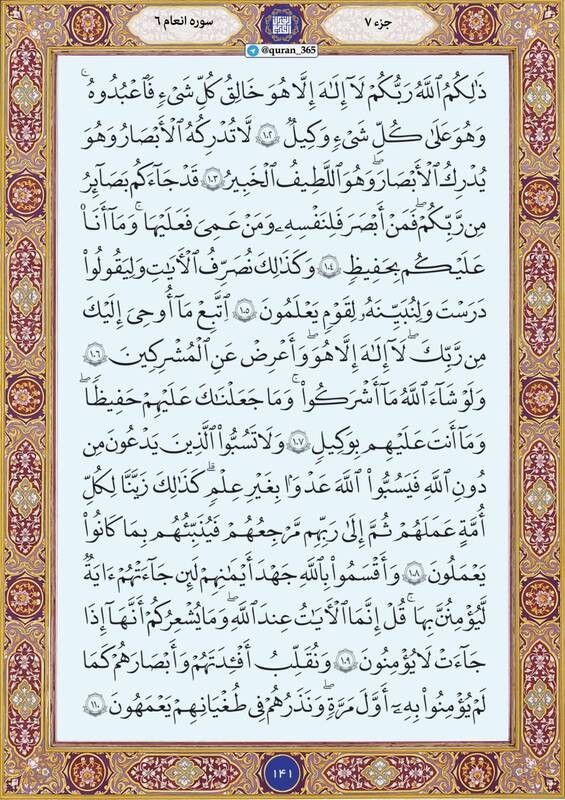 جزء ۷
سوره انعام ۶
@quran_365
ذَٰلِكُمُ ٱللَّهُ رَبُّكُمْ لَآ إِلَٰهَ إِلَّا هُوَ خَٰلِقُ كُلِّ شَىْءٍ فَٱعْبُدُوهُ ۚ
وَهُوَ عَلَىٰ كُلِّ شَىْءٍ وَكِيلٌ ۝١٠٢ لَّا تُدْرِكُهُ ٱلْأَبْصَٰرُ وَهُوَ
يُدْرِكُ ٱلْأَبْصَٰرَ ۖ وَهُوَ ٱللَّطِيفُ ٱلْخَبِيرُ ۝١٠٣ قَدْ جَآءَكُم بَصَآئِرُ
مِن رَّبِّكُمْ ۖ فَمَنْ أَبْصَرَ فَلِنَفْسِهِۦ وَمَنْ عَمِىَ فَعَلَيْهَا ۚ وَمَآ أَنَا۠
عَلَيْكُم بِحَفِيظٍ ۝١٠٤ وَكَذَٰلِكَ نُصَرِّفُ ٱلْأَيَٰتِ وَلِيَقُولُوا۟
دَرَسْتَ وَلِنُبَيِّنَهُۥ لِقَوْمٍ يَعْلَمُونَ ۝١٠٥ ٱتَّبِعْ مَآ أُوحِىَ إِلَيْكَ
مِن رَّبِّكَ ۖ لَآ إِلَٰهَ إِلَّا هُوَ ۖ وَأَعْرِضْ عَنِ ٱلْمُشْرِكِينَ ۝١٠٦
وَلَوْ شَآءَ ٱللَّهُ مَآ أَشْرَكُوا۟ ۗ وَمَا جَعَلْنَٰكَ عَلَيْهِمْ حَفِيظًا ۖ
وَمَآ أَنتَ عَلَيْهِم بِوَكِيلٍ ۝١٠٧ وَلَا تَسُبُّوا۟ ٱلَّذِينَ يَدْعُونَ مِن
دُونِ ٱللَّهِ فَيَسُبُّوا۟ ٱللَّهَ عَدْوًۢا بِغَيْرِ عِلْمٍ ۗ كَذَٰلِكَ زَيَّنَّا لِكُلِّ
أُمَّةٍ عَمَلَهُمْ ثُمَّ إِلَىٰ رَبِّهِم مَّرْجِعُهُمْ فَيُنَبِّئُهُم بِمَا كَانُوا۟
يَعْمَلُونَ ۝١٠٨ وَأَقْسَمُوا۟ بِٱللَّهِ جَهْدَ أَيْمَٰنِهِمْ لَئِن جَآءَتْهُمْ ءَايَةٌ
لَّيُؤْمِنُنَّ بِهَا ۚ قُلْ إِنَّمَا ٱلْأَيَٰتُ عِندَ ٱللَّهِ ۖ وَمَا يُشْعِرُكُمْ أَنَّهَآ إِذَا
جَآءَتْ لَا يُؤْمِنُونَ ۝١٠٩ وَنُقَلِّبُ أَفْـِٔدَتَهُمْ وَأَبْصَٰرَهُمْ كَمَا
لَمْ يُؤْمِنُوا۟ بِهِۦٓ أَوَّلَ مَرَّةٍ ۖ وَنَذَرُهُمْ فِى طُغْيَٰنِهِمْ يَعْمَهُونَ ۝١١٠
۱۴۱